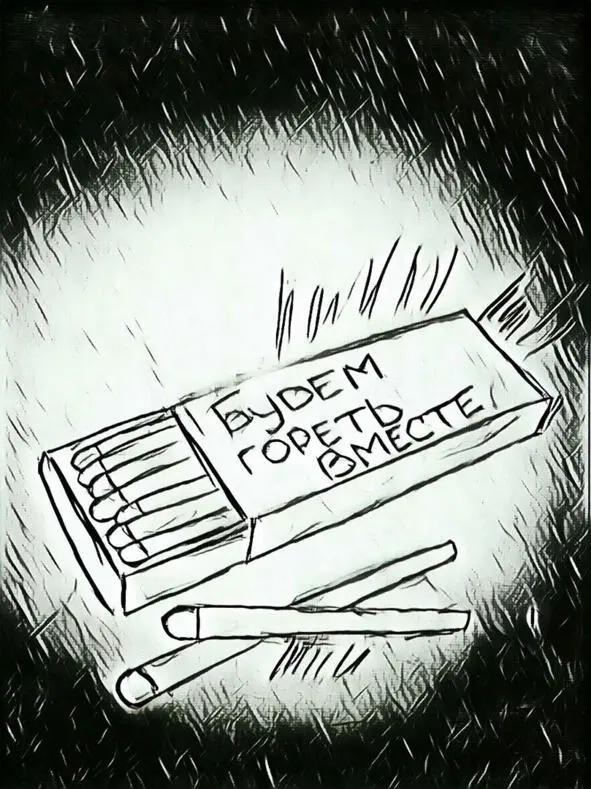 БУДЕМ
ГОРЕТЬ
ВМЕСТЕ